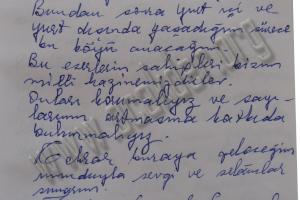 Bundan sonra yurt içi ve
yurt dışında yaşadığım sürece
en böyük anacağım.
Bu eserlerin sahipleri bizim
milli hazinemizdirler.
Onları korumalıyız ve sayı-
larının artmasına katkıda
bulunmalıyız.
Tekrar buraya geleceğim
umuduyla sevgi ve selâmlar
sunarım.